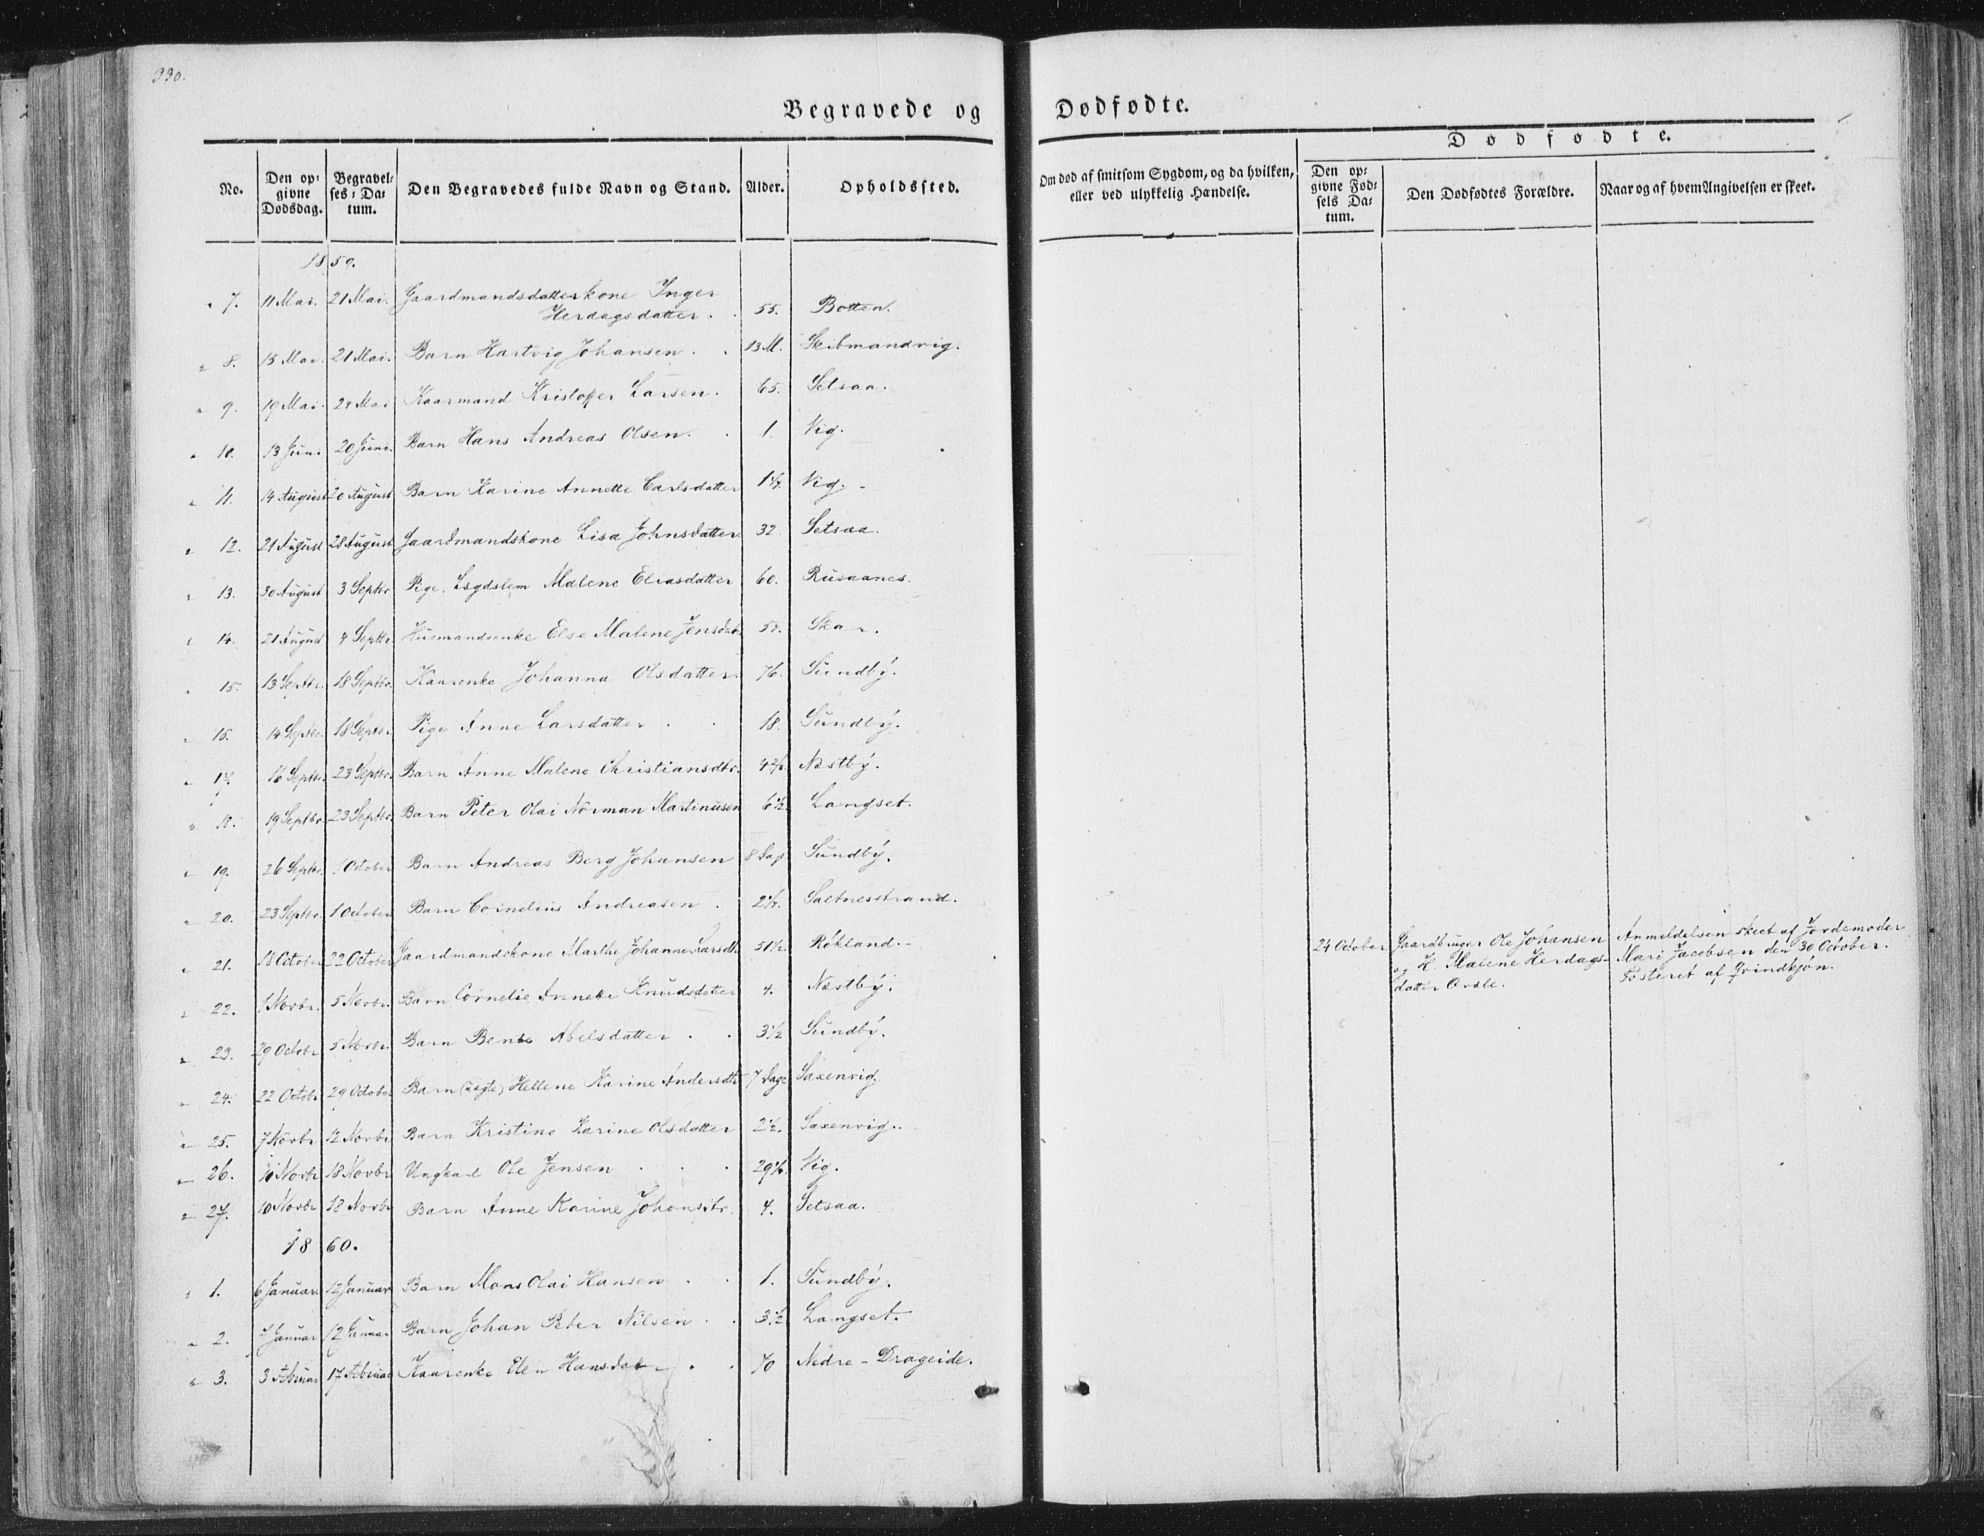 330.
Begravede og Dødfødte.
Dødfødte.
No.
Den opgivne Dødsdag.
Begravelses-Datum.
Den Begravedes fulde Navn og Stand.
Alder.
Opholdssted.
Om død af smitsom Sygdom, og da hvilken, eller ved ulykkelig Hændelse.
Den opgivne Fødsels Datum.
Den Dødfødtes Forældre.
Naar og af hvem Angivelsen er skeet.
1859.
" 7. 11 Mai. 21 Mai. Gaardmandskone Inger
Herdagsdatter. 55. Botten.
" 8. 15 Mai 21 Mai. Barn Hartvig Johansen. 13 M. Skibmandvig.
" 9. 19 Mai. 24 Mai Kaarmand Kristofer Larsen. 65. Setsaa.
" 10. 13 Juni 20 Juni. Barn Hans Andreas Olsen. 1. Vig.
" 11. 14 August 20 August Barn Karine Annette Carlsdatter Vig.
" 12. 21 August 28 August Gaardmandskone Lisa Johnsdatter 32 Setsaa.
" 13. 30 August 3 Septbr Pige, Lægdslem Malene Eliasdatter 60. Rusaanes.
" 14. 21 August 4 Septbr Husmandsenke Else Malene Jensdtr Skar.
" 15. 13 Septbr. 18 Septbr. Kaarenke Johanna Olsdatter. 76. Sundby.
" 16. 14 Septbr. 18 Septbr. Pige Anne Larsdatter 18. Sundby.
" 17. 16 Septbr. 23 Septbr. Barn Anne Malene Christiansdtr. Næstby.
" 18. 19 Septbr. 23 Septbr. Barn Peter Olai Norman Martinusen 6 1/2 Langset.
" 19. 26 Septbr. 1 October Barn Andreas Berg Johansen 8 Dage Sundby.
" 20. 23 Septbr. 1 October Barn Cornelius Andreasen. Saltnesstrand.
" 21. 18 October 22 October Gaardmandskone Marthe Johanne Larsdtr 51 1/2. Røkland.
24 October Gaardbruger Ole Johansen
og H. Malene Herdags-
datter Osale.
Anmeldelsen skeet af Jordemoder
Mari Jacobsen den 30 October.
Fosteret af Qvindkjøn.
" 22. 1 Novbr. 5 Novbr. Barn Cornelie Annebe Knudsdatter 4. Næstby.
" 23. 29 Octobr 5 Novbr. Barn Bente Abelsdatter 3 1/2 Sundby.
" 24. 22 Octobr 29 October Barn (uægte) Hellene Karine Andersdtr 7 Dage Saxenvig.
" 25. 7 Novbr 12 Novbr Barn Kristine Karine Olsdatter 2 1/2. Saxenvig.
" 26. 10 Novbr 18 Novbr Ungkarl Ole Jensen Vig.
" 27. 10 Novbr 18 Novbr Barn Anne Karine Johansdtr. 4. Setsaa.
1860.
" 1. 6 Januar. 12 Januar Barn Mons Olai Hansen 1. Sundby.
" 2. 7 Januar 12 Januar Barn Johan Peter Nilsen 3 1/2 Langset.
" 3. 3 Februar 17 Februar Kaarenke Elen Hansdatr 70 Nedre-Drageide.